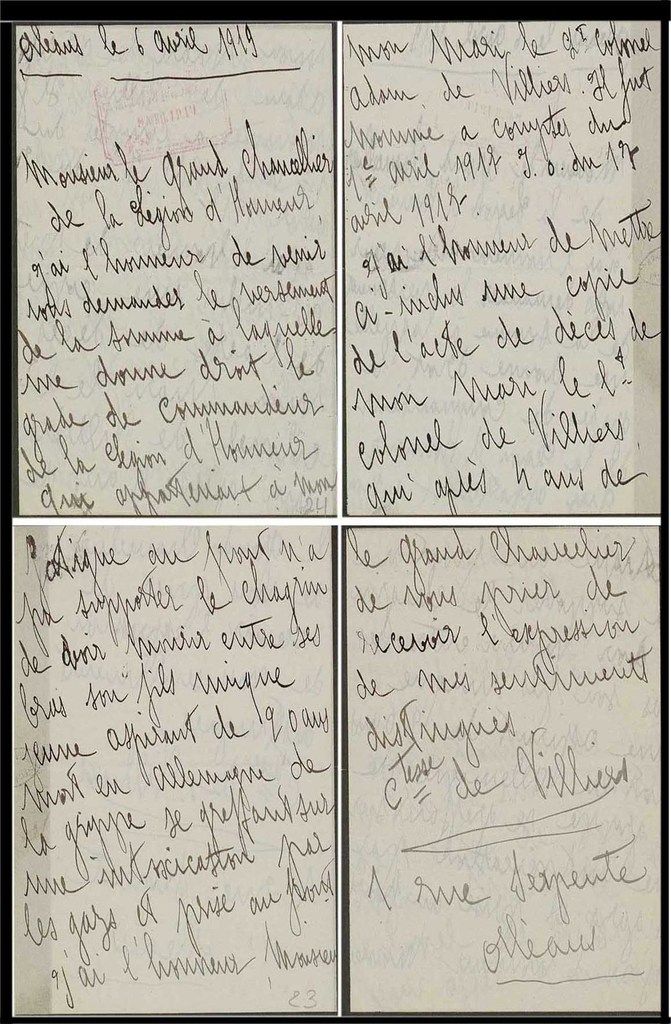 Orléans le 6 avril 1919
Monsieur le Grand Chancellier
de la Légion d'Honneur
j'ai l'honneur de venir
vous demander le versement
de la somme à laquelle
me donne droit le
grade de commandeur
de la Légion d'Honneur
appartenant à mon
24
mon mari le Lt Colonel
adam de Villiers. Il fut
nommé a compter du
avril 1917 J. O. du
avril 1917.
J'ai l'honneur de mettre
ci-inclus une copie
de l'acte de décès de
mon mari le Lt
colonel de Villiers
qui après 4 ans de
fatigue au front n'a
pu supporter le chagrin
de voir mourir entre ses
bras son fils unique
jeune aspirant de ans
mort en allemagne de
la grippe se greffant sur
une intoxication par
les gazs et prise au front
j'ai l'honneur Monsieur
23
le Grand Chancelier
de vous prier de
recevoir l'expression
de mes sentiments
distingués
Ctesse de Villiers
1 rue Serpente
Orléans